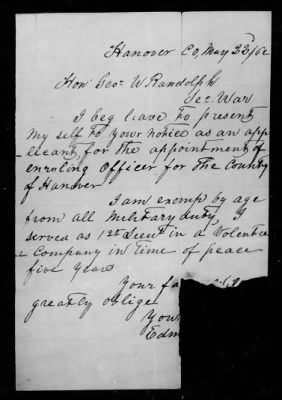 Hanover Co, May 23/62
Hon Geo. W Randolph
Sec. War
I beg leave to present
my self to your notice as an app
licant, for the appointment of
enroling Officer for the County
of Hanover
I am exemp by age
from all Melitary duty, I
served as 1st Lieut in a Volentee
Company in time of peace
five years
Your fa
greatly oblige
Your
Edm